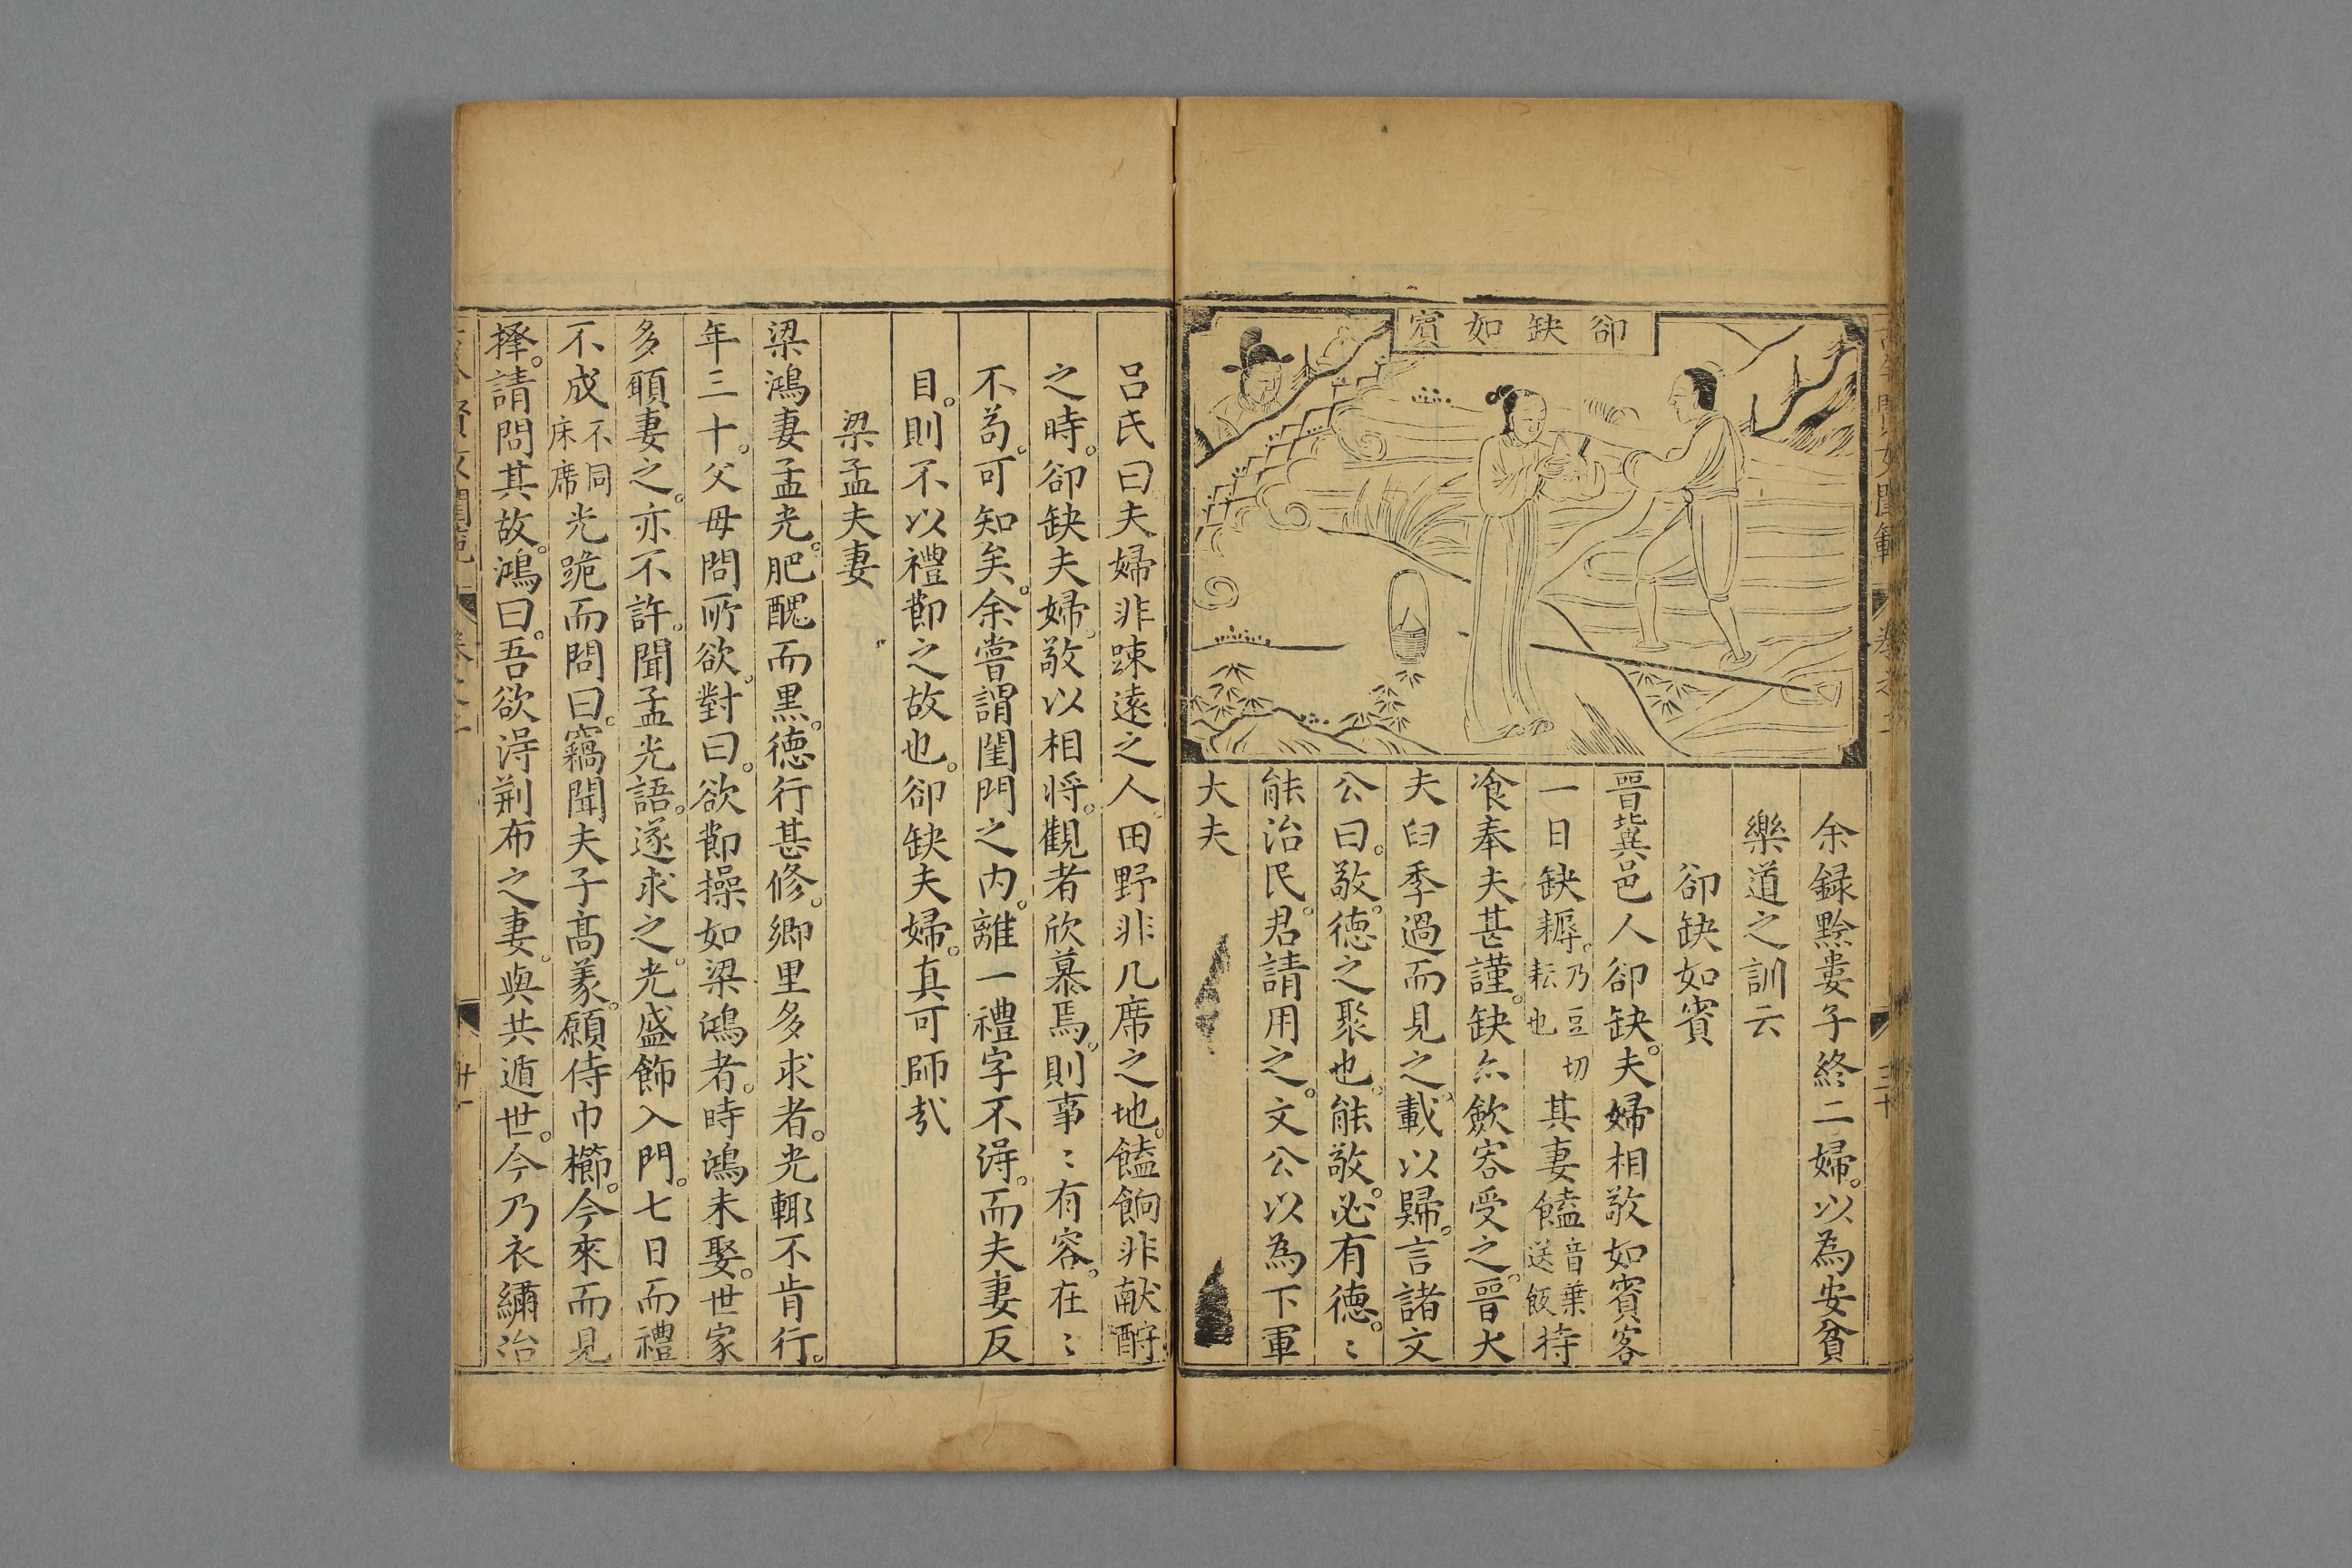 郤缺如賓
余録黔婁子終二婦。以為安貧
樂道之訓云
郤缺如賓
晋冀邑人郤缺。夫婦相敬如賓客
一日缺耨。乃豆切耘也其妻饁音葉送飯持
飡奉夫甚謹。缺亦歛容受之。晋大
夫臼季過而見之。載以歸。言諸文
公曰。敬。徳之聚也。能敬。必有徳。〻
能治民。君請用之。文公以為下軍
大夫
吕氏曰夫婦非踈遠之人。田野非几席之地。饁餉非献酧
之時。郤缺夫婦。敬以相将。觀者欣慕焉。則事〻有容。在〻
不苟。可知矣。余嘗謂閨門之内。離一禮字不淂。而夫妻反
目。則不以禮節之故也。郤缺夫婦。真可師哉
梁孟夫妻
梁鴻妻孟光。肥醜而黒。徳行甚修。鄉里多求者。光輙不肯行。
年三十。父母問所欲。對曰。欲節操如梁鴻者。時鴻未娶。世家
多願妻之。亦不許。聞孟光語。遂求之。光盛飾入門。七日而禮
不成不同床席光跪而問曰。竊聞夫子髙義。願侍巾櫛。今來而見
擇。請問其故。鴻曰。吾欲淂荆布之妻。與共遁世。今乃衣繡治